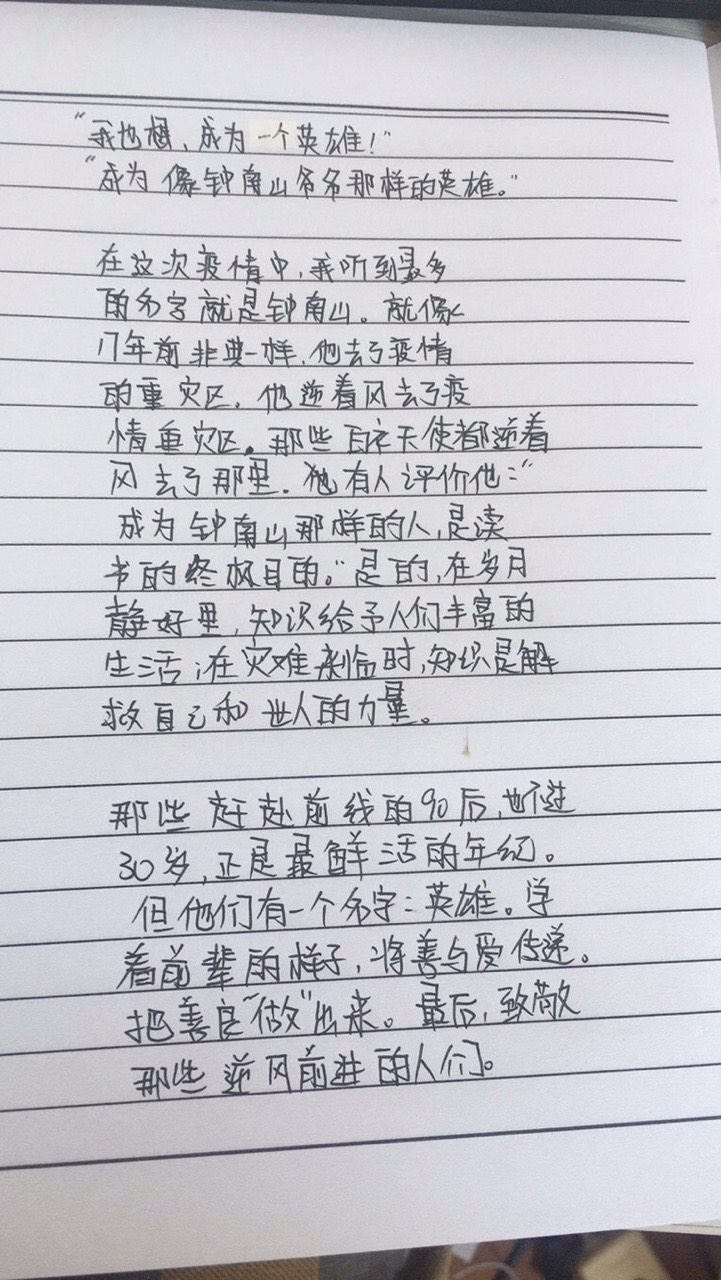 "我也想，成为一个英雄！"
"成为像钟南山爷爷那样的英雄。"
在这次疫情中，我听到最多
的名字就是钟南山。就像
17年前非典一样，他去了疫情
的重灾区，他逆着风去了疫
情重灾区。那些白衣天使都逆着
风去了那里。有人评价他："
成为钟南山那样的人，是读
书的终极目的。"是的，在岁月
静好里，知识给予人们丰富的
生活；在灾难来临时，知识是解
救自己和世人的力量。
那些赶赴前线的90后，也不过
30岁，正是最鲜活的年纪。
但他们有一个名字：英雄。学
着前辈的样子，将善与爱传递。
把善良"做"出来。最后，致敬
那些逆风前进的人们。